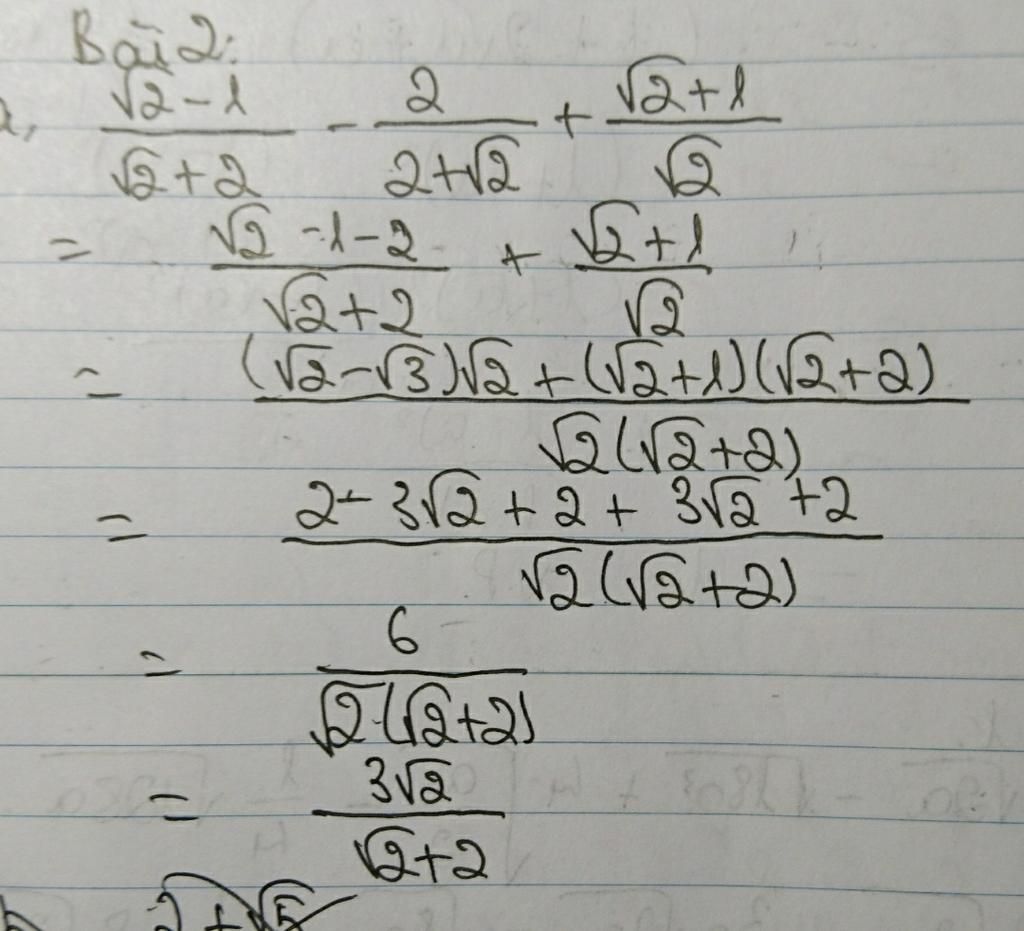 Bài 2:
a, \frac{\sqrt{2}-1}{\sqrt{2}+2} - \frac{2}{2+\sqrt{2}} + \frac{\sqrt{2}+1}{\sqrt{2}}
= \frac{\sqrt{2}-1-2}{\sqrt{2}+2} + \frac{\sqrt{2}+1}{\sqrt{2}}
= \frac{(\sqrt{2}-\sqrt{3})\sqrt{2}+(\sqrt{2}+1)(\sqrt{2}+2)}{\sqrt{2}(\sqrt{2}+2)}
= \frac{2-3\sqrt{2}+2+3\sqrt{2}+2}{\sqrt{2}(\sqrt{2}+2)}
= \frac{6}{\sqrt{2}(\sqrt{2}+2)}
= \frac{3\sqrt{2}}{\sqrt{2}+2}
2+\sqrt{5}